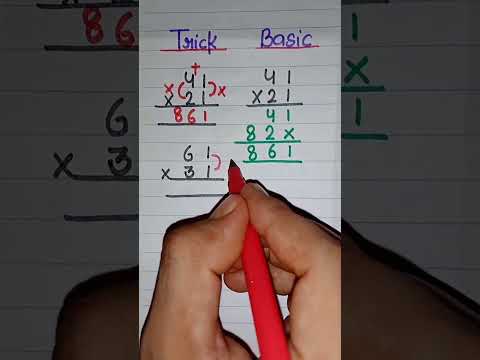 Trick Basic
+
x ( 4 1 ) x
x 2 1
8 6 1
4 1
x 2 1
4 1
8 2 x
8 6 1
6 1 )
x 3 1